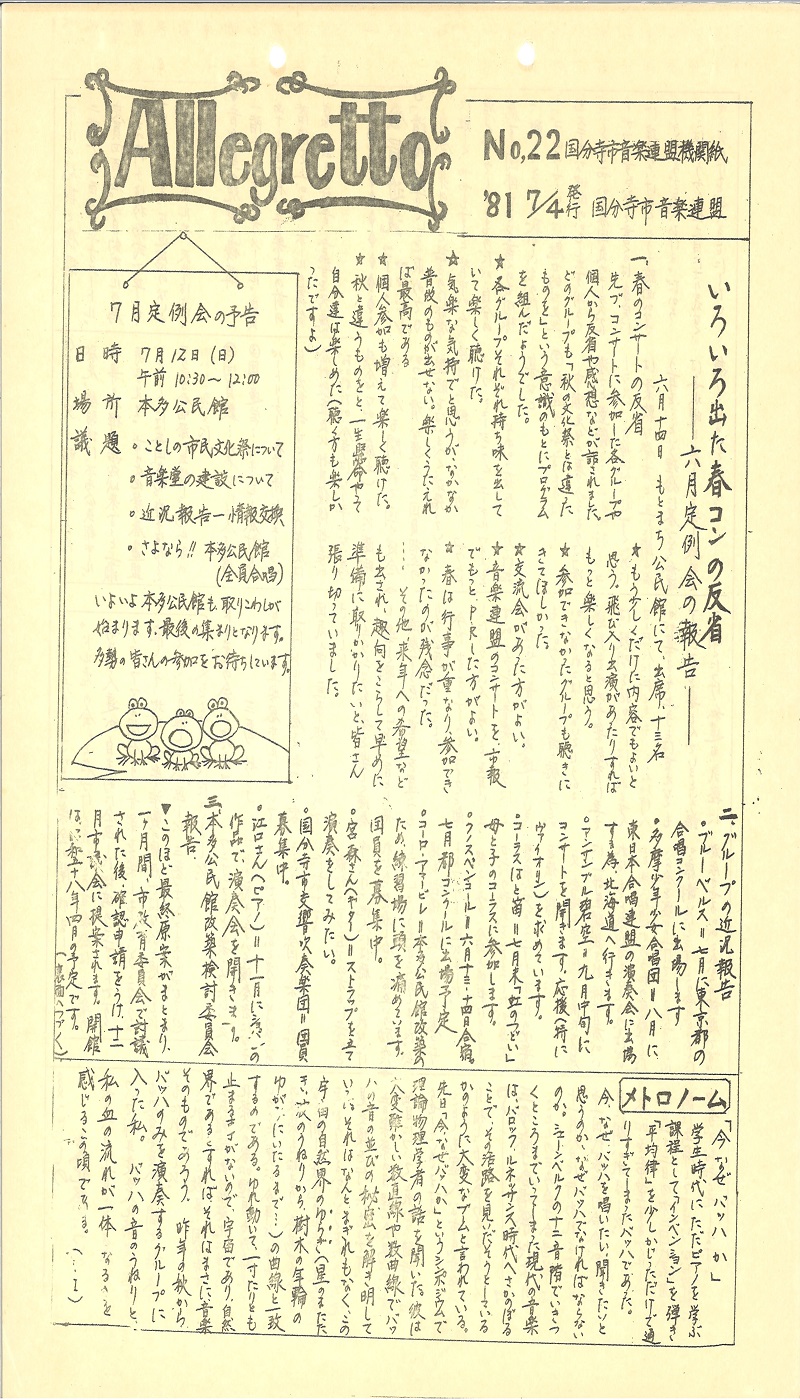 Allegretto
No.22 国分寺市音楽連盟機関紙
'81 7/4 発行 国分寺市音楽連盟
いろいろ出た春コンの反省
――六月定例会の報告――
六月十四日 もとまち公民館にて、出席、十三名
一、春のコンサートの反省
先ず、コンサートに参加した各グループや
個人から反省や感想などが話されました。
どのグループも「秋の文化祭とは違った
ものを」という意識のもとにプログラム
を組んだようでした。
☆各グループそれぞれ持ち味を出して
いて楽しく聴けた。
☆気楽な気持でと思うが、なかなか
普段のものが出せない。楽しくうたえれ
ば最高である
☆個人参加も増えて楽しく聴けた。
☆秋と違うものをと、一生懸命やって
自分達は楽しめた(聴く方も楽しか
ったですよ)
☆もう少しくだけた内容でもよいと
思う。飛び入り出演があたりすれば
もっと楽しくなると思う。
☆参加できなかたグループも聴きに
きてほしかった。
☆交流会があった方がよい。
☆音楽連盟のコンサートを、市報
でもっと、PRした方がよい。
☆春は行事が重なり、参加でき
なかったのが残念だった。
……その他、来年への希望など
も出され、趣向をこらして早めに
準備に取りかかりたいと、皆さん
張り切っていました。
7月定例会の予告
日時 7月12日(日)
午前 10:30~12:00
場所 本多公民館
議題 ◦ことしの市民文化祭について
◦音楽堂の建設について
◦近況報告―情報交換
◦さよなら!! 本多公民館
(全員合唱)
いよいよ本多公民館も、取りこわしが
始まります。最後の集まりとなります。
多勢の皆さんの参加をお待ちしています。
二、グループの近況報告
◦ブルーベルス=七月に東京都の
合唱コンクールに出場します
◦多摩少年少女合唱団=八月に、
東日本合唱連盟の演奏会に出場
する為、北海道へ行きます。
◦アンサンブル碧空=九月中旬に
コンサートを開きます。応援(特に
ヴァイオリン)を求めています。
◦コーラスはと笛=七月末「虹のつどい」
母と子のコーラスに参加します。
◦クノスペンコール=六月十三・十四日合宿。
七月都コンクールに出場予定
◦コーロ・アマービレ=本多公民館改築の
ため、練習場に頭を痛めています。
団員を募集中。
◦宮森さん(ギター)=ストラップを立て
演奏をしてみたい。
◦国分寺市交響吹奏楽団=団員
募集中。
◦江口さん(ピアノ)=十一月に の
作品で、演奏会を開きます。
三、本多公民館改築検討委員会
報告
▼このほど最終原案がまとまり、
一ヶ月間、市教育委員会で討議
された後、確認申請をうけ、十二
月市議会に提案されます。開館
は、 五十八年四月の予定です。
(裏面へつづく)
メトロノーム
「今なぜバッハか」
学生時代に、ただピアノを学ぶ
課程として「インベンション」を弾き
「平均律」を少しかじっただけで通
りすぎてしまったバッハであった。
今、なぜ、バッハを唱いたい、聞きたいと
思うのか、なぜバッハでなければならない
のか。シェーンベルクの十二音階でいきつ
くところまでいってしまった現代の音楽
は、バロック、ルネサンス時代へさかのぼる
ことで、その活路を見いだそうとしている
かのように大変なブームと言われている。
先日「今、なぜバッハか」というシンポジウムで
理論物理学者の話を聞いた。彼は
大変難かしい数直線や数曲線でバッ
ハの音の並びの秘密を解き明して
いった。それはなんと、まぎれもなく、この
宇宙の自然界のゆらぎ(星のまたた
き、波のうねりから、樹木の年輪の
ゆがみにいたるまで…)の曲線と一致
するのである。ゆれ動いて、一寸たりとも
止まることがないので、宇宙であり、自然
界であるとすれば、それはまさに、音楽
そのものであろう。昨年の秋から、
バッハのみを演奏するグループに
入った私。バッハの音のうねりと、
私の血の流れが一体 なるのを
感じるこの頃である。